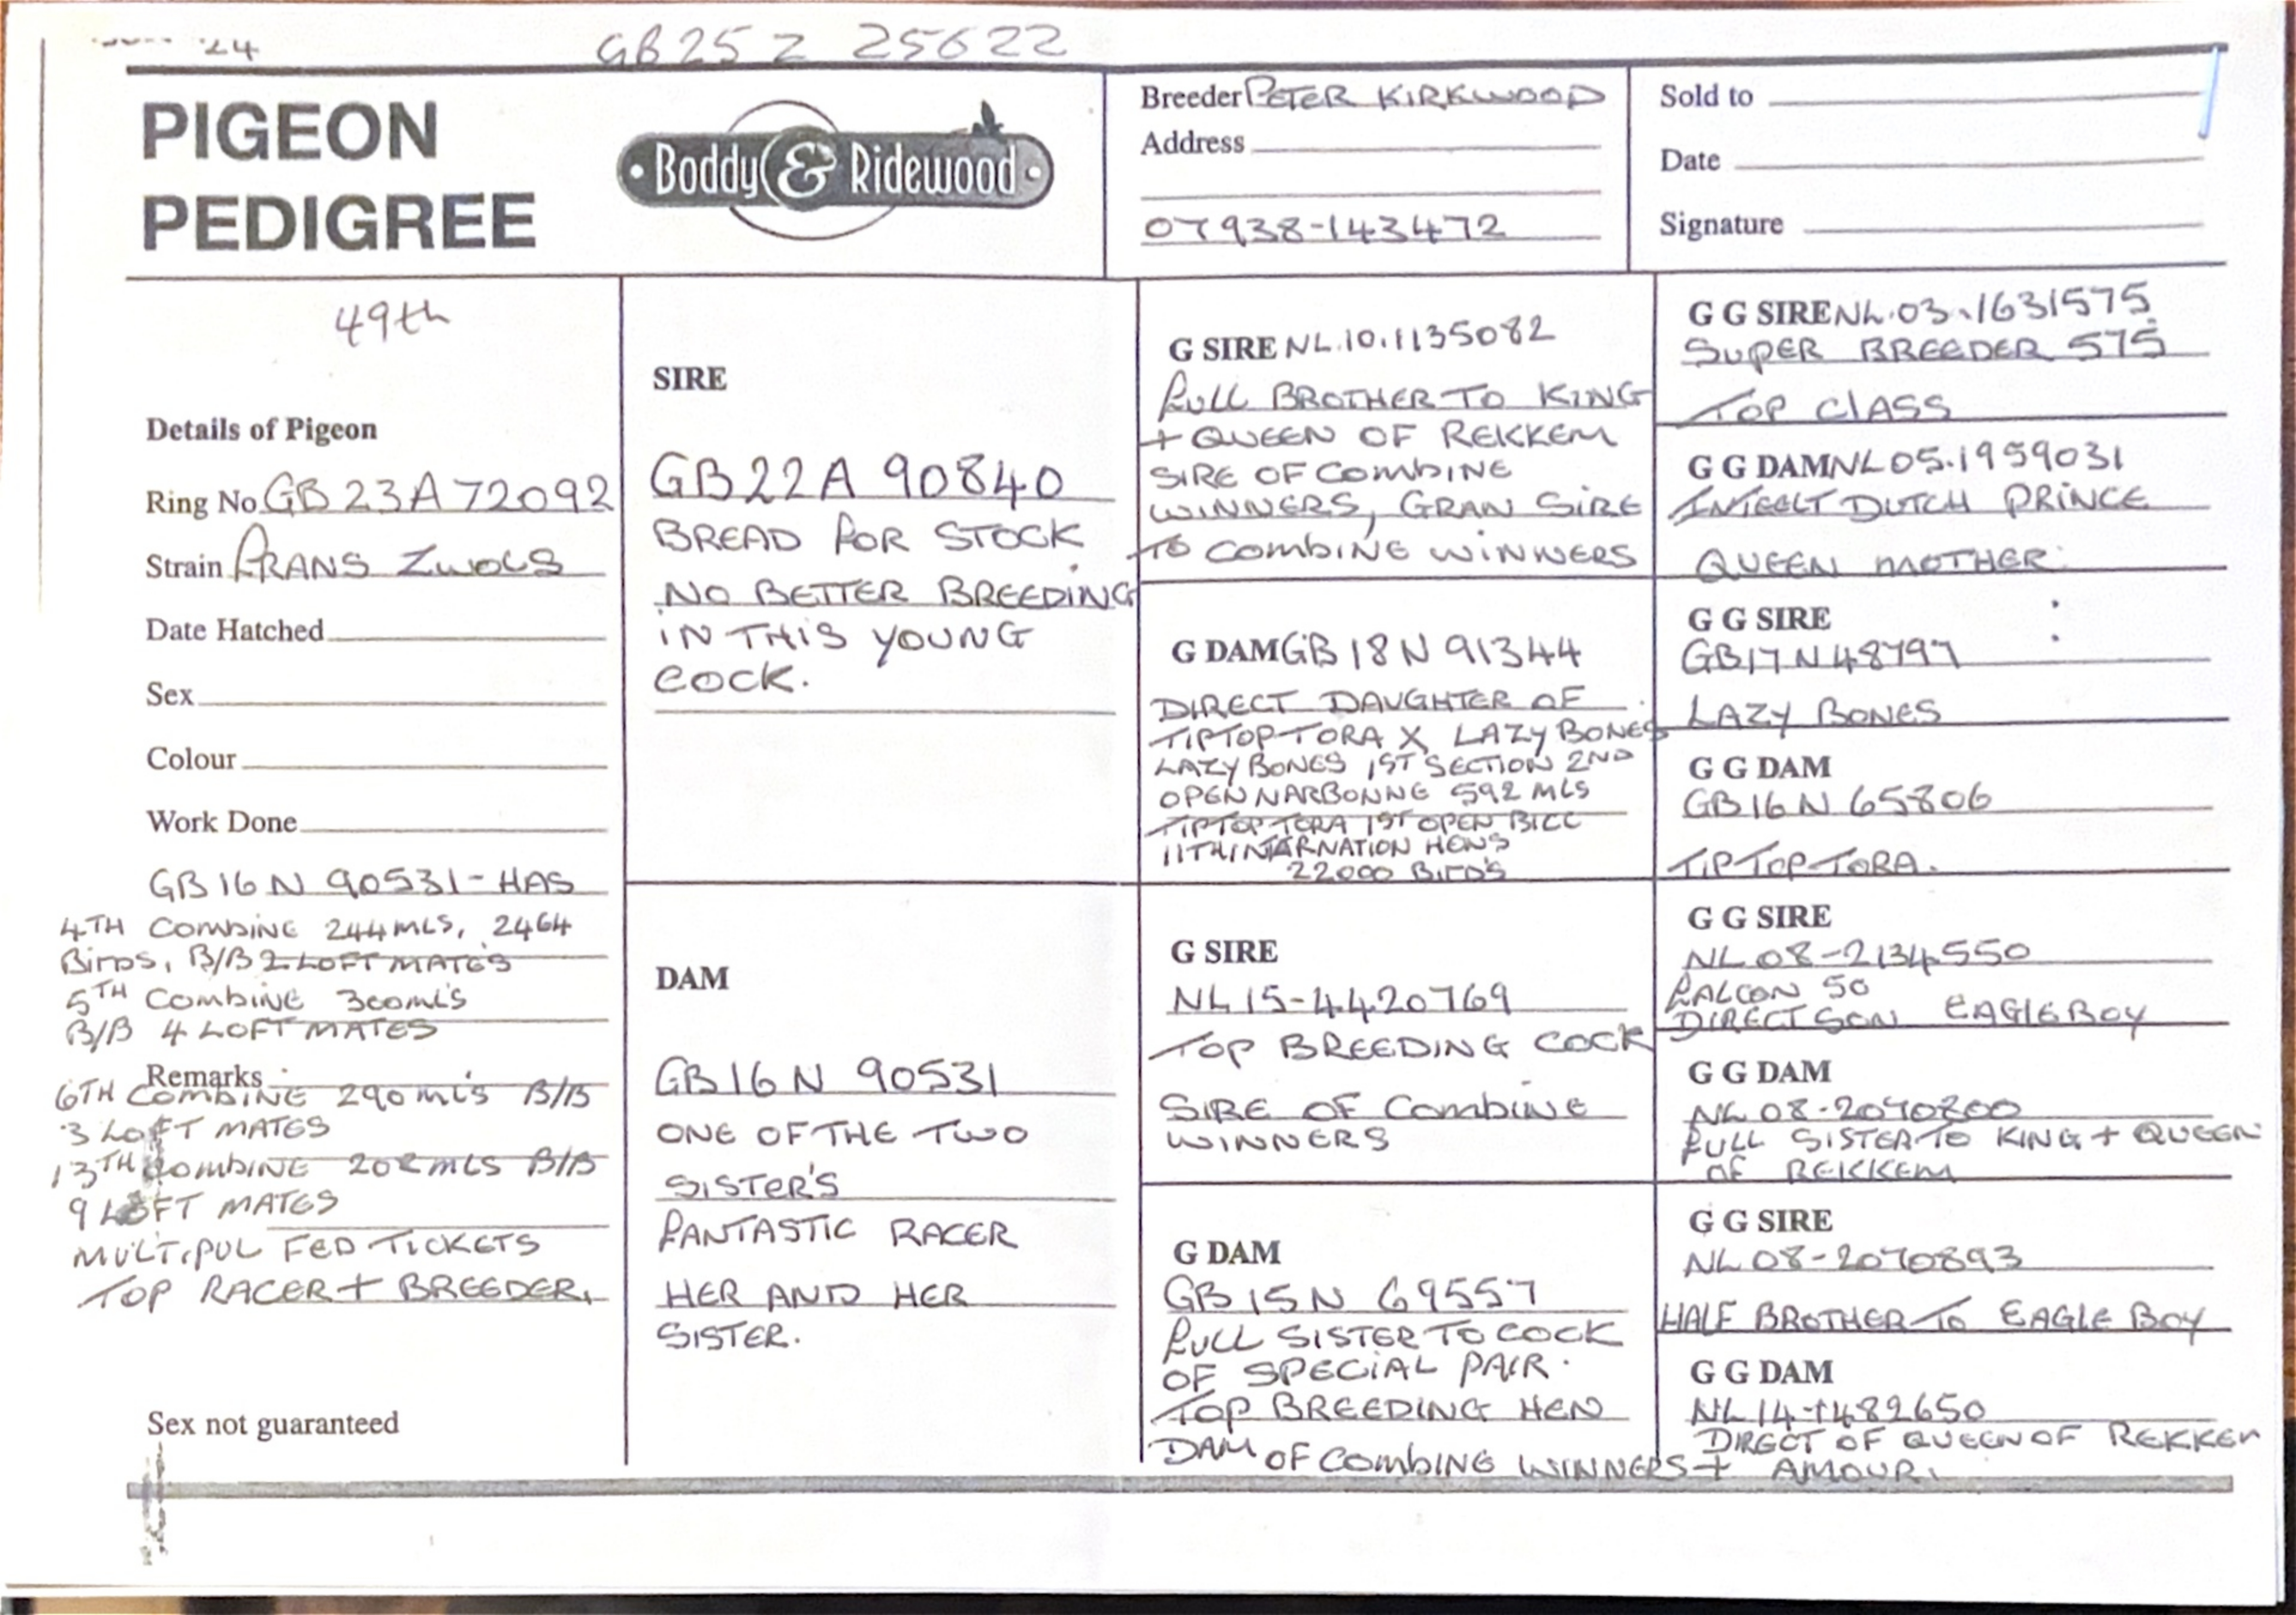 24
GB25 Z 25622
PIGEON
PEDIGREE
Boddy & Ridewood
Breeder PETER KIRKWOOD
Address
07938-143472
Sold to
Date
Signature
49th
Details of Pigeon
Ring No GB 23A72092
Strain FRANS ZWOLS
Date Hatched
Sex
Colour
Work Done
GB16 N 90531-HAS
4TH COMBINE 244MLS, 2464
BIRDS, B/B 2 LOFT MATES
5TH COMBINE 300MLS
B/B 4 LOFT MATES
Remarks
6TH COMBINE 290 MLS B/B
3 LOFT MATES
13TH COMBINE 202 MLS B/B
9 LOFT MATES
MULTIPUL FED TICKETS
TOP RACER + BREEDER.
Sex not guaranteed
SIRE
GB22A 90840
BREAD FOR STOCK
NO BETTER BREEDING
IN THIS YOUNG
COCK.
DAM
GB16N 90531
ONE OF THE TWO
SISTER'S
FANTASTIC RACER
HER AND HER
SISTER.
G SIRE NL.10.1135082
FULL BROTHER TO KING
+ QUEEN OF REKKEM
SIRE OF COMBINE
WINNERS, GRAN SIRE
TO COMBINE WINNERS
G DAM GB18N 91344
DIRECT DAUGHTER OF
TIPTOP TORA X LAZY BONES
LAZY BONES 1ST SECTION 2ND
OPEN NARBONNE 592 MLS
TIPTOP TORA 1ST OPEN BICC
11TH INTARNATION HENS
22000 BIRD'S
G SIRE
NL15-4420769
TOP BREEDING COCK
SIRE OF COMBINE
WINNERS
G DAM
GB15N 69557
FULL SISTER TO COCK
OF SPECIAL PAIR.
TOP BREEDING HEN
DAM OF COMBINE WINNERS
G G SIRE NL.03.1631575
SUPER BREEDER 575
TOP CLASS
G G DAM NL05.1959031
INTEELT DUTCH PRINCE
QUEEN MOTHER
G G SIRE
GB17N48797
LAZY BONES
G G DAM
GB16N 65806
TIPTOPTORA.
G G SIRE
NL08-2134550
FALCON 50
DIRECT SON EAGLEBOY
G G DAM
NL08-2070800
FULL SISTER TO KING + QUEEN
OF REKKEM
G G SIRE
NL08-2070893
HALF BROTHER TO EAGLE BOY
G G DAM
NL14-1482650
DIRECT OF QUEEN OF REKKEM
+ AMOUR.